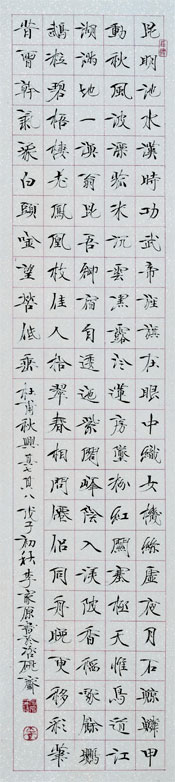 昆明池水漢時功武帝旌旗在眼中織女機絲虛夜月石鯨鱗甲
動秋風波漂菰米沉雲黑露冷蓮房墜粉紅關塞極天惟鳥道江
湖滿地一漁翁昆吾御宿自逶迤紫閣峰陰入渼陂香稻啄餘鸚
鵡粒碧梧棲老鳳凰枝佳人拾翠春相問僊侶同舟晚更移彩筆
昔曾幹氣象白頭吟望苦低垂 杜甫秋興其七其八 戊子初秋李家原書於研齋